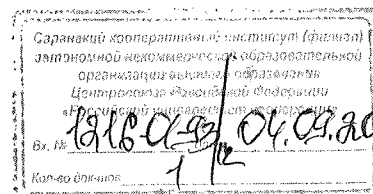 Саранский кооперативный институт (филиал)
автономной некоммерческой образовательной
организации высшего образования
Центросоюза Российской Федерации
«Российский университет кооперации»
Вх. № 1216-01-93/12 04.09.20
Кол-во док-тов 1